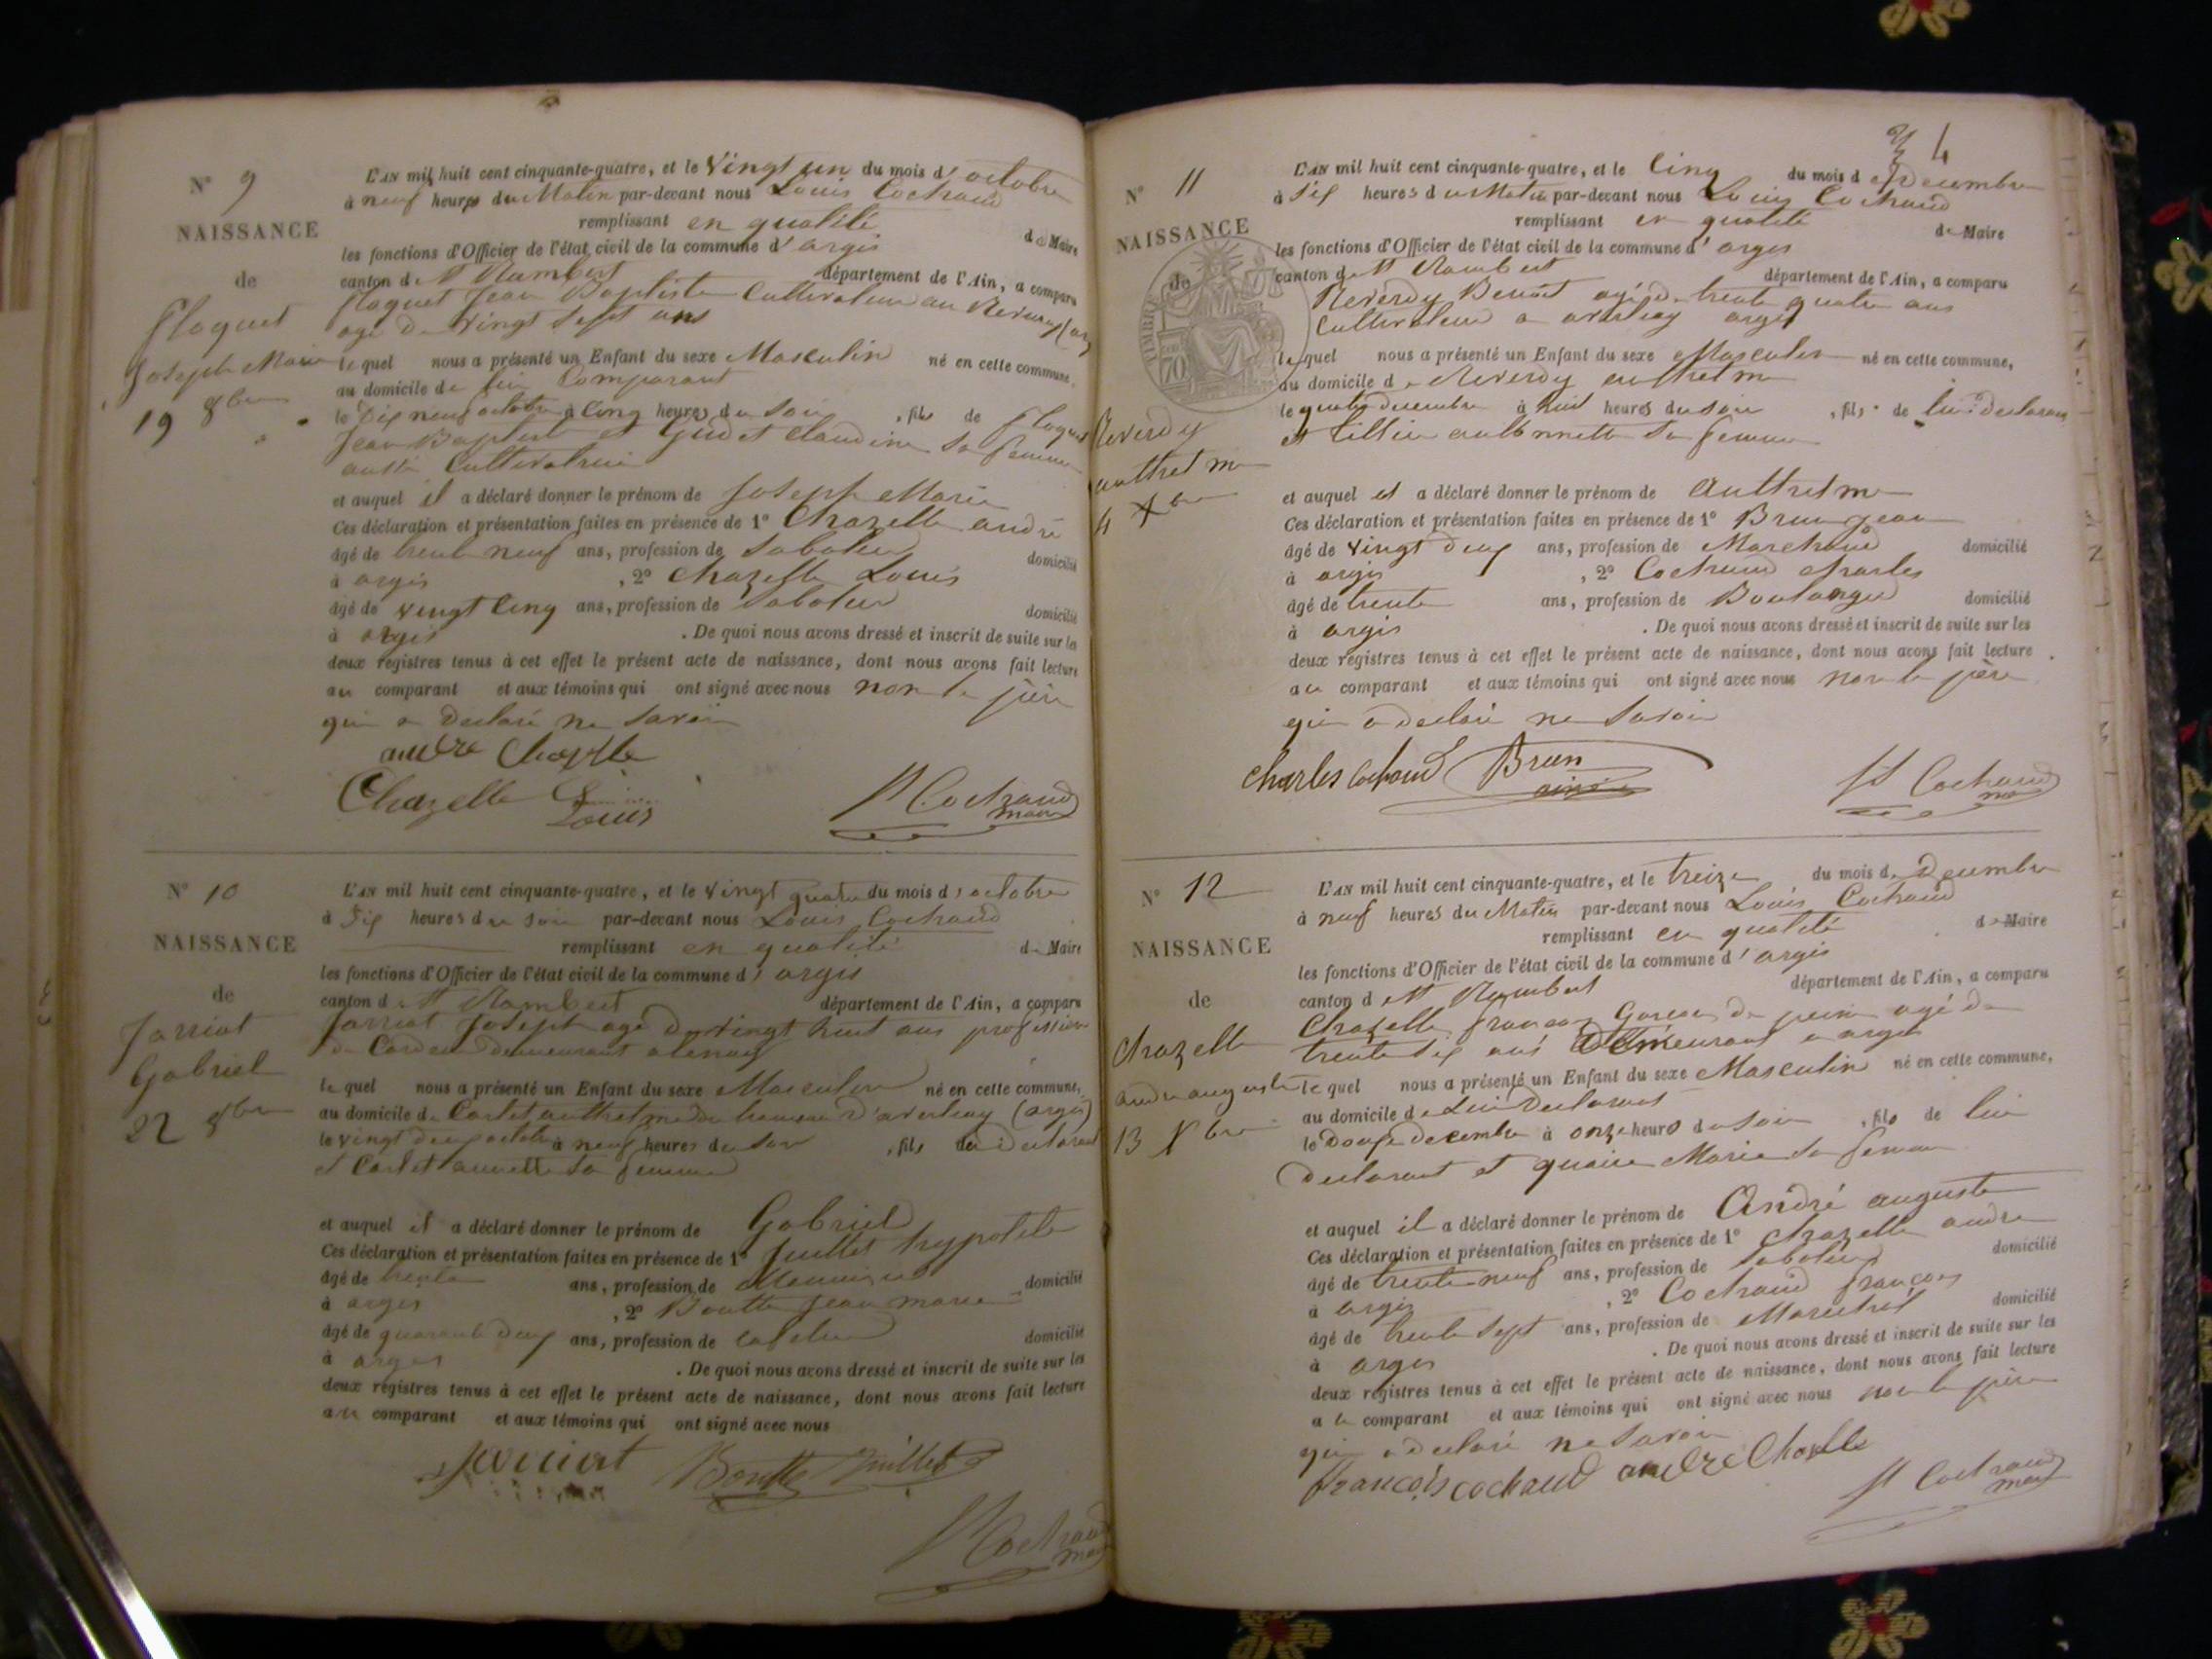 N° 9
NAISSANCE
de
Floquet
Joseph Marie
19 8bre
L'AN mil huit cent cinquante-quatre, et le Vingt un du mois d'octobre
à neuf heures du Matin par-devant nous Louis Cochaud
remplissant en qualité de Maire
les fonctions d'Officier de l'état civil de la commune d'argis
canton de St Rambert département de l'Ain, a comparu
floquet Jean Baptiste Cultivateur au
agé de Vingt Sept ans
lequel nous a présenté un Enfant du sexe Masculin né en cette commune,
au domicile de lui Comparant
le Dix neuf octobre à Cinq heures du Soir, fils de floquet
Jean Baptiste et Claudine Sa femme
aussi
et auquel il a déclaré donner le prénom de Joseph Marie
Ces déclaration et présentation faites en présence de 1° Chazelle andré
âgé de trente neuf ans, profession de Saboteur domicilié
à argis, 2° Chazelle Louis
âgé de vingt Cinq ans, profession de Saboteur domicilié
à argis. De quoi nous avons dressé et inscrit de suite sur les
deux registres tenus à cet effet le présent acte de naissance, dont nous avons fait lecture
au comparant et aux témoins qui ont signé avec nous non le père
qui a declaré ne Savoir
andre Chazelle
Chazelle Louis
Cochaud maire
N° 10
NAISSANCE
de
Jarriat
Gabriel
22 8bre
L'AN mil huit cent cinquante-quatre, et le Vingt quatre du mois d'octobre
à Six heures du Soir par-devant nous Louis Cochaud
remplissant en qualité de Maire
les fonctions d'Officier de l'état civil de la commune d'argis
canton de St Rambert département de l'Ain, a comparu
Jarriat Joseph agé de Vingt huit ans profession
de demeurant a tenay
lequel nous a présenté un Enfant du sexe Masculin né en cette commune,
au domicile de anthelme du hameau d'averliay (argis)
le vingt deux octobre à neuf heures du Soir, fils du Declarant
et annette Sa femme
et auquel il a déclaré donner le prénom de Gabriel
Ces déclaration et présentation faites en présence de 1° Juillet hypolite
âgé de trente ans, profession de domicilié
à argis, 2° Boutte Jean marie
âgé de quarante deux ans, profession de domicilié
à argis. De quoi nous avons dressé et inscrit de suite sur les
deux registres tenus à cet effet le présent acte de naissance, dont nous avons fait lecture
au comparant et aux témoins qui ont signé avec nous
Jarriat Boutte Juillet
Cochaud maire
4
N° 11
NAISSANCE
de
TIMBRE
70
Reverdy
anthelme
4 Xbre
L'AN mil huit cent cinquante-quatre, et le Cinq du mois de Decembre
à Six heures du Matin par-devant nous Louis Cochaud
remplissant en qualité de Maire
les fonctions d'Officier de l'état civil de la commune d'argis
canton de St Rambert département de l'Ain, a comparu
Reverdy Benoit agé de trente quatre ans
Cultivateur a averliay argis
lequel nous a présenté un Enfant du sexe Masculin né en cette commune,
au domicile de Reverdy anthelme
le quatre decembre à huit heures du Soir, fils de lui declarant
et anthonnette Sa femme
et auquel il a déclaré donner le prénom de Anthelme
Ces déclaration et présentation faites en présence de 1° Brun Jean
âgé de Vingt deux ans, profession de Marchand domicilié
à argis, 2° Cochaud Charles
âgé de trente ans, profession de Boulanger domicilié
à argis. De quoi nous avons dressé et inscrit de suite sur les
deux registres tenus à cet effet le présent acte de naissance, dont nous avons fait lecture
au comparant et aux témoins qui ont signé avec nous non le père
qui a declaré ne Savoir
Charles Cochaud Brun ainé
Cochaud
N° 12
NAISSANCE
de
Chazelle
andré auguste
13 Xbre
L'AN mil huit cent cinquante-quatre, et le treize du mois de Decembre
à neuf heures du Matin par-devant nous Louis Cochaud
remplissant en qualité de Maire
les fonctions d'Officier de l'état civil de la commune d'argis
canton de St Rambert département de l'Ain, a comparu
Chazelle françois agé de
trente Six ans Demeurant a argis
lequel nous a présenté un Enfant du sexe Masculin né en cette commune,
au domicile de Lui Declarant
le Douze decembre à onze heures du Soir, fils de lui
Declarant et Marie Sa femme
et auquel il a déclaré donner le prénom de André auguste
Ces déclaration et présentation faites en présence de 1° Chazelle andre
âgé de trente-neuf ans, profession de Saboteur domicilié
à argis, 2° Cochaud françois
âgé de trente Sept ans, profession de Marechal domicilié
à argis. De quoi nous avons dressé et inscrit de suite sur les
deux registres tenus à cet effet le présent acte de naissance, dont nous avons fait lecture
a le comparant et aux témoins qui ont signé avec nous non le père
qui a declaré ne Savoir
françois cochaud andre Chazelle
Cochaud maire